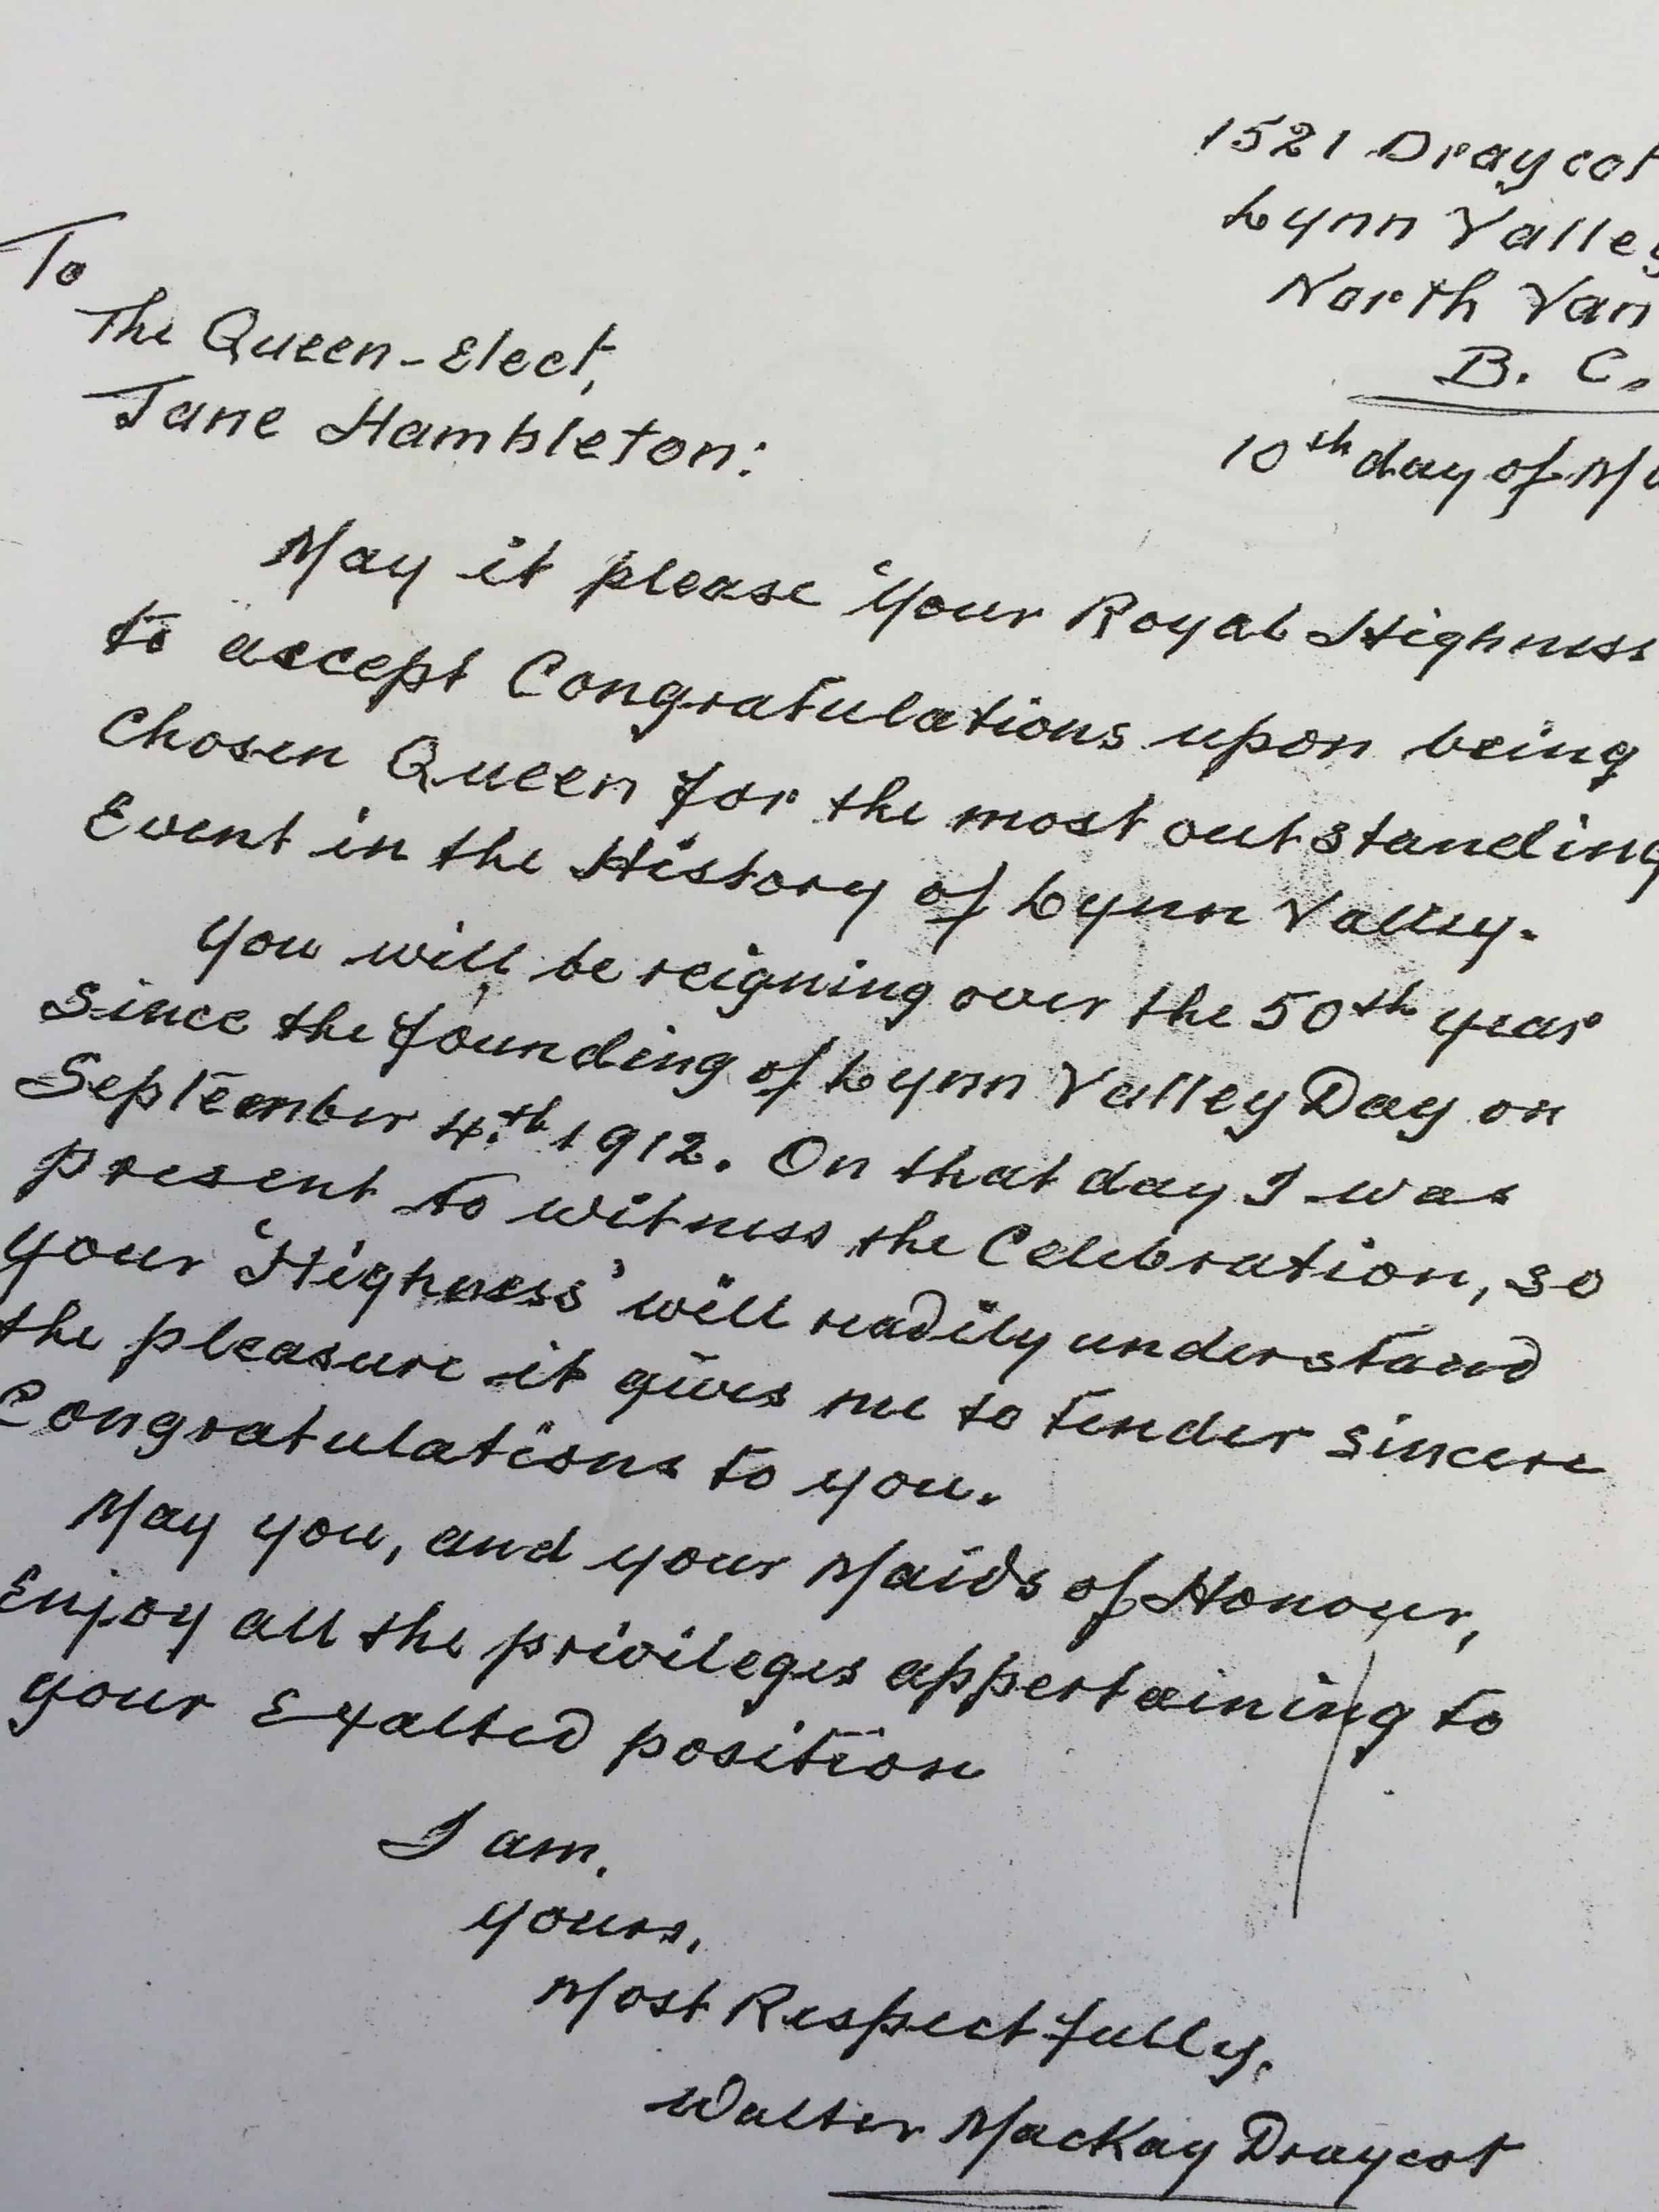 1521 Draycot
Lynn Valley
North Van
B. C.
10th day of
To
The Queen-Elect,
Jane Hambleton:
May it please 'Your Royal Highness
to accept Congratulations upon being
Chosen Queen for the most outstanding
Event in the History of Lynn Valley.
You will be reigning over the 50th year
Since the founding of Lynn Valley Day on
September 4th 1912. On that day I was
present to witness the Celebration, so
your 'Highness' will readily understand
the pleasure it gives me to tender sincere
Congratulations to you.
May you, and your Maids of Honour,
Enjoy all the privileges appertaining to
your Exalted position
I am.
yours,
Most Respectfully,
Walter MacKay Draycot